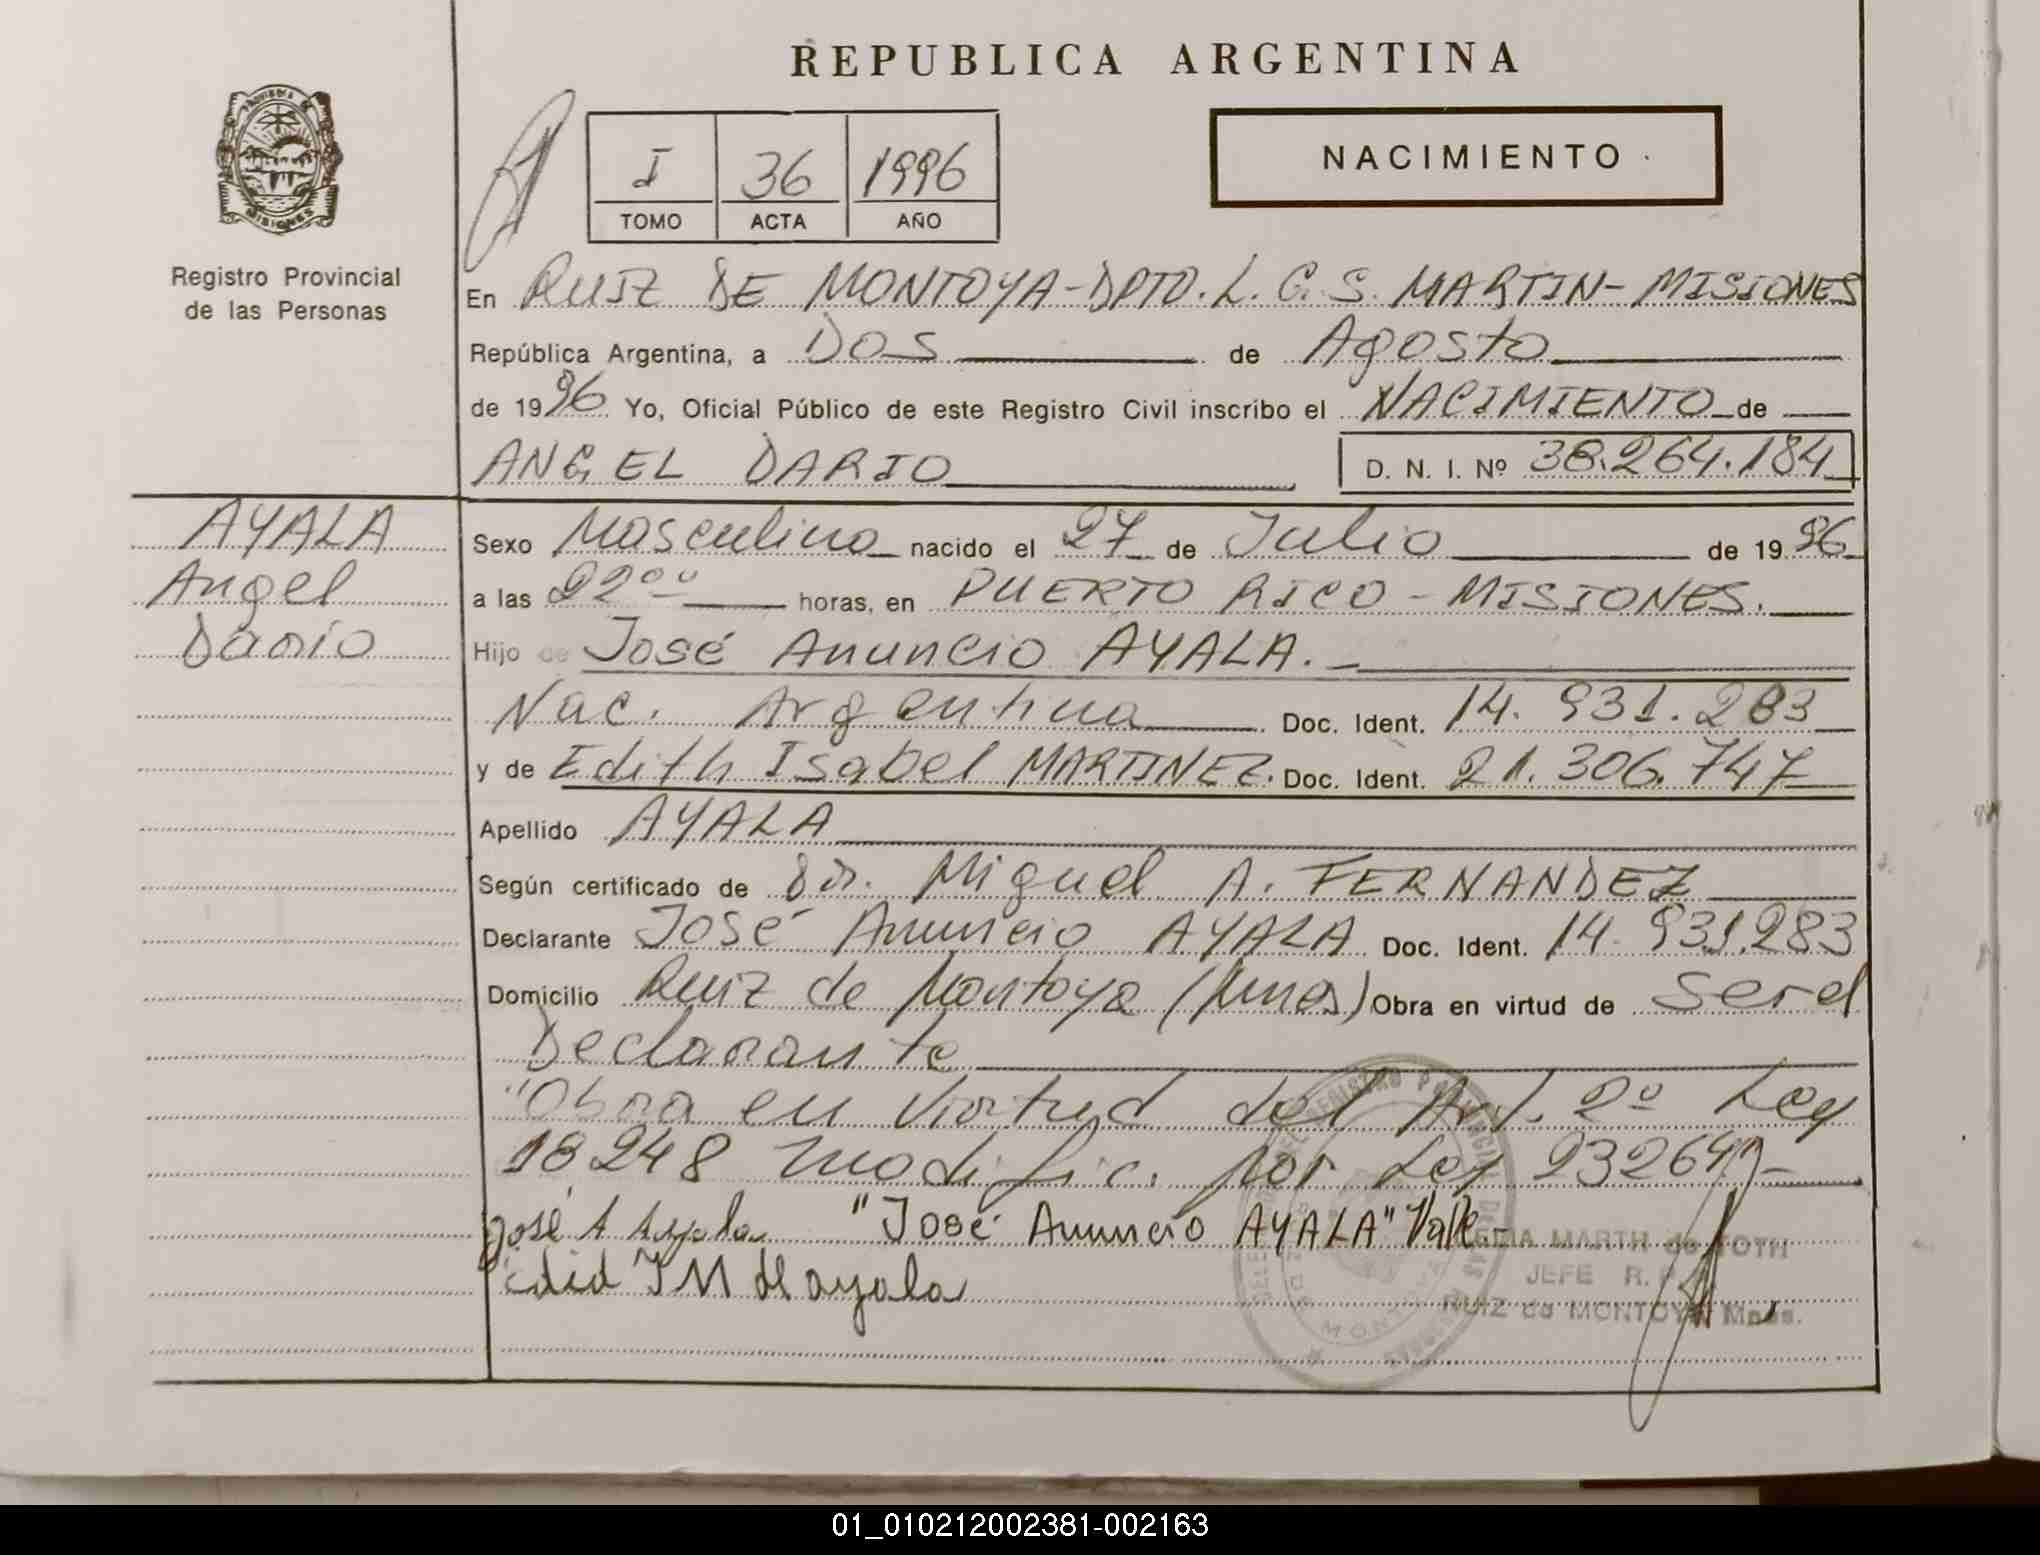 REPUBLICA ARGENTINA
PROVINCIA DE
MISIONES
Registro Provincial
de las Personas
I 36 1996
TOMO ACTA AÑO
NACIMIENTO
En RUIZ DE MONTOYA-DPTO. L. G. S. MARTIN-MISIONES
República Argentina, a DOS de Agosto
de 1996 Yo, Oficial Público de este Registro Civil inscribo el NACIMIENTO de
ANGEL DARIO D. N. I. Nº 38.264.184
AYALA
Angel
Dario
Sexo Masculino nacido el 27 de Julio de 1996
a las 22°° horas, en PUERTO RICO - MISIONES.
Hijo de José Anuncio AYALA.
Nac. Argentina Doc. Ident. 14.931.283
y de Edith Isabel MARTINEZ. Doc. Ident. 21.306.747
Apellido AYALA
Según certificado de Dr. Miguel A. FERNANDEZ
Declarante José Anuncio AYALA Doc. Ident. 14.931.283
Domicilio Ruiz de Montoya (Mnes) Obra en virtud de Ser el
Declarante
"Obra en virtud del Art. 2º Ley
18248 modific. por Ley 23264"
José A Ayala "José Anuncio AYALA" Vale
MARTH de TOTH
JEFE R. P.
RUIZ de MONTOYA Mnes.
I M de ayala
01_010212002381-002163